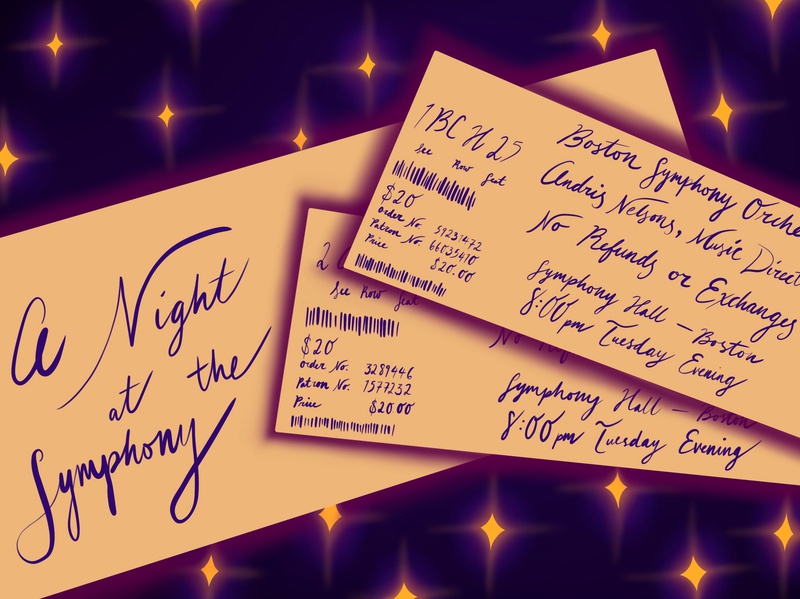 A Night
at the
Symphony
1 BC H 25
Sec Row Seat
$20
Order No. 59231472
Patron No.
Price $20.00
Boston Symphony Orche
Andris Nelsons, Music Direct
No Refunds or Exchanges
Symphony Hall – Boston
8:00 pm Tuesday Evening
2
Sec Row Seat
$20
Order No. 3289446
Patron No. 1577232
Price $20.00
No
Symphony Hall – Boston
8:00 pm Tuesday Evening